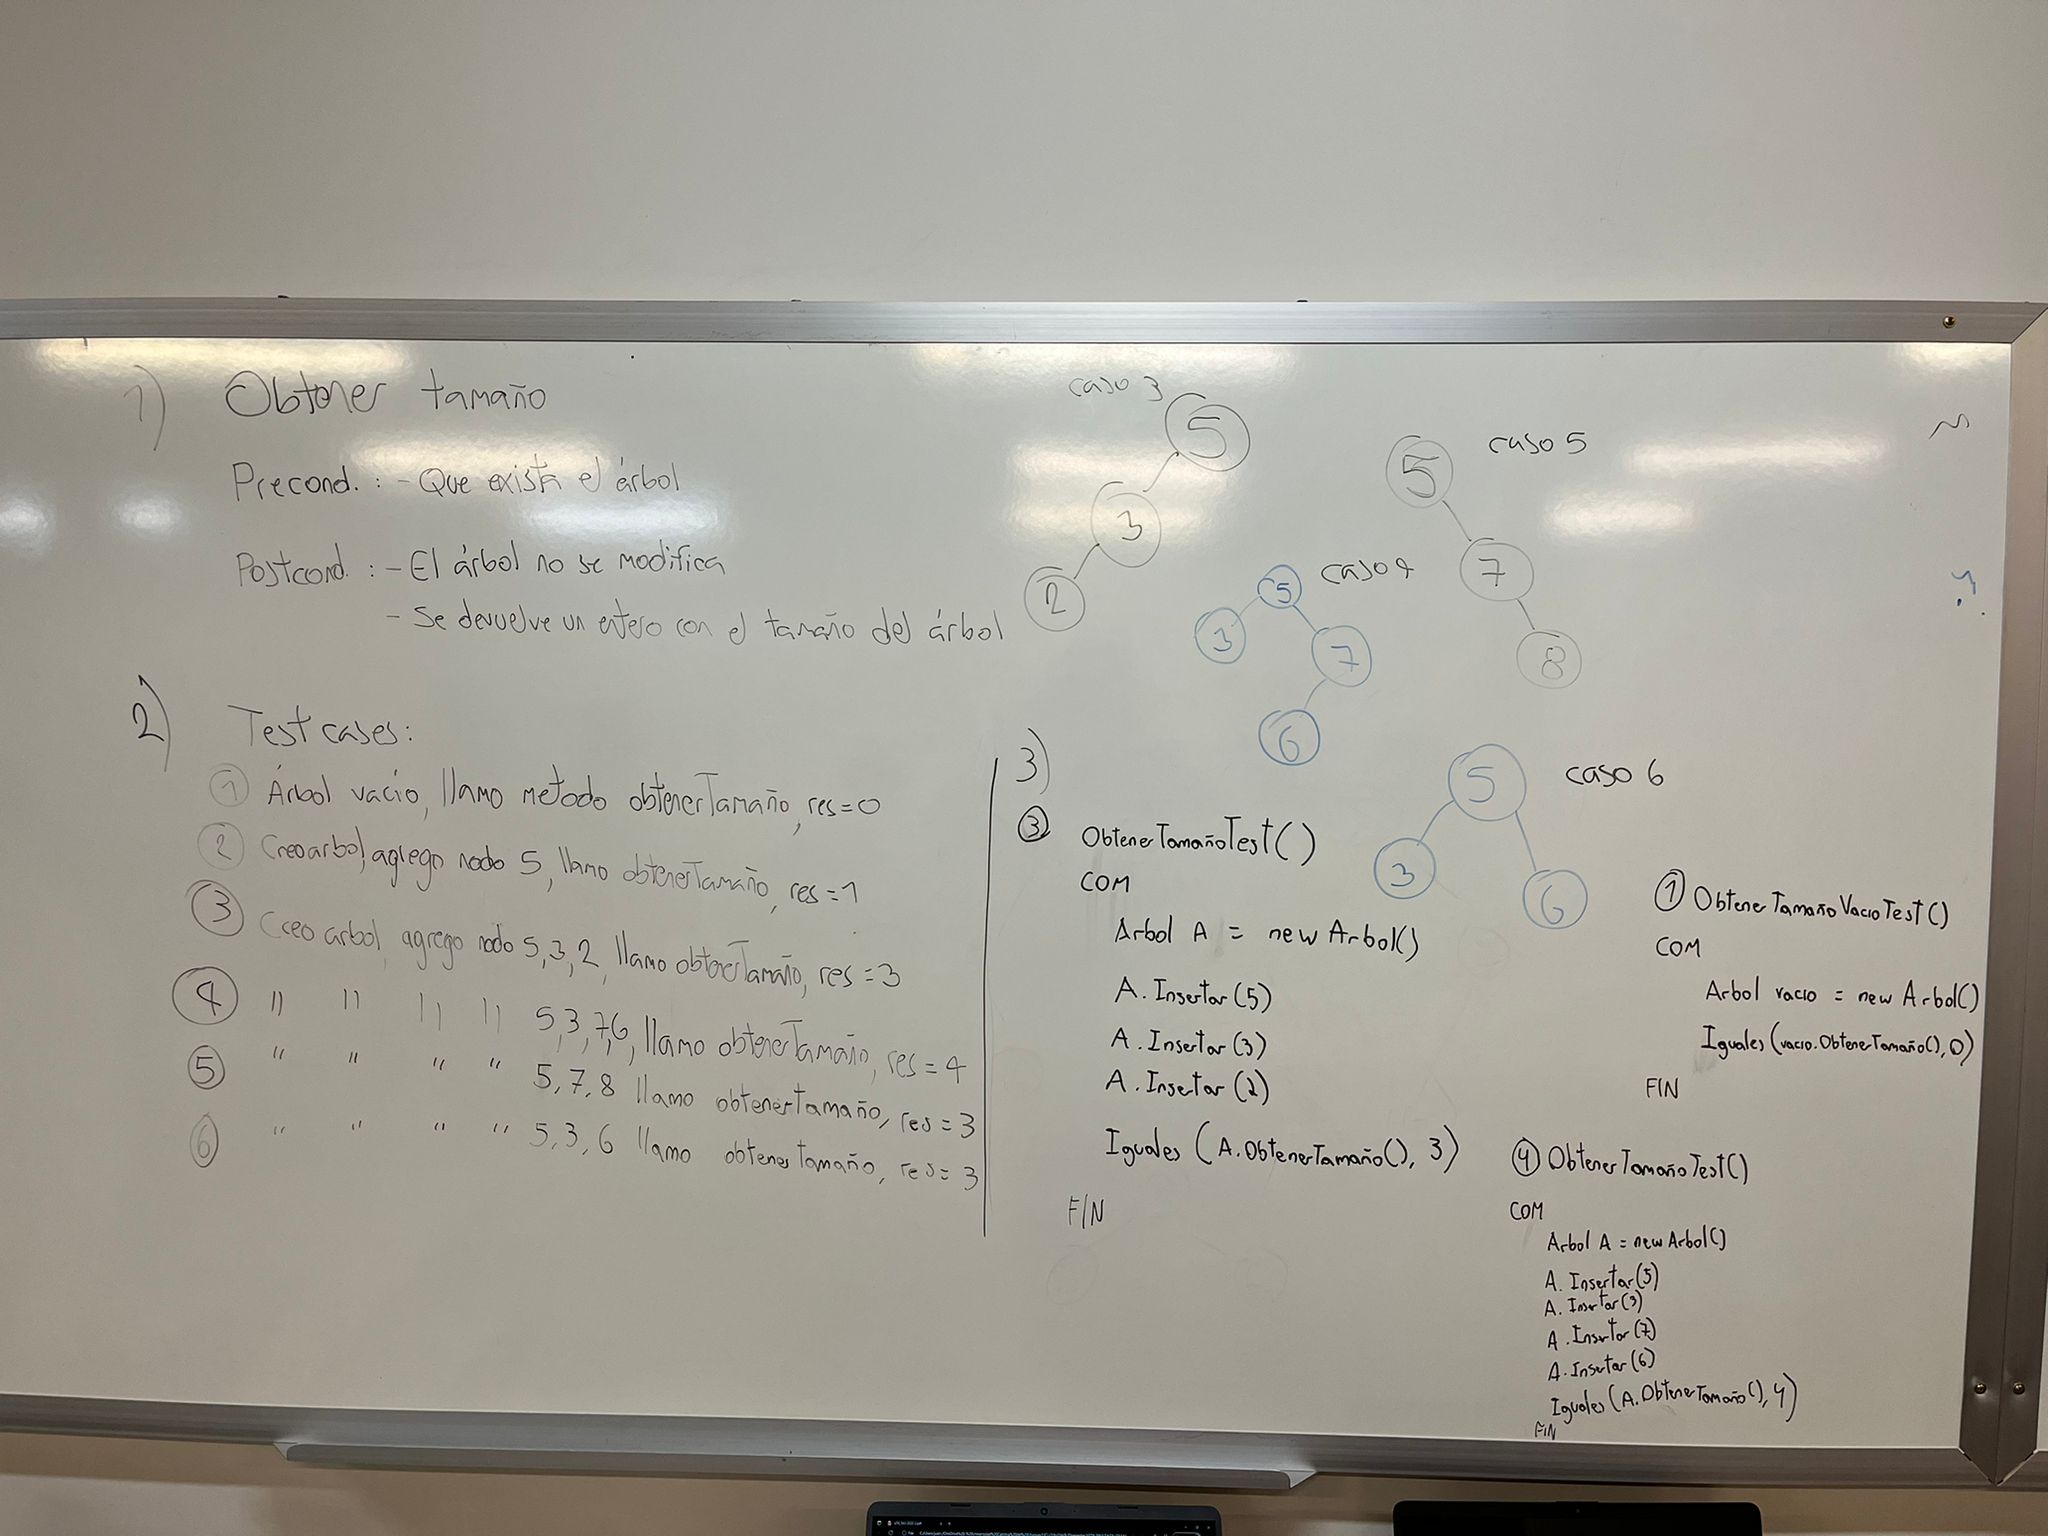 1) Obtener tamaño
Precond. : - Que exista el árbol
Postcond. : - El árbol no se modifica
- Se devuelve un entero con el tamaño del árbol
2) Test cases:
1 Árbol vacío, llamo metodo obtenerTamaño, res=0
2 Creo arbol, agrego nodo 5, llamo obtenerTamaño, res=1
3 Creo arbol, agrego nodo 5,3,2, llamo obtenerTamaño, res=3
4 " " " " 5,3,7,6, llamo obtenerTamaño, res=4
5 " " " " 5,7,8 llamo obtenertamaño, res=3
6 " " " " 5,3,6 llamo obtener tamaño, res=3
caso 3
5
3
2
caso 5
5
7
8
caso 4
5
3 7
6
caso 6
5
3 6
3)
3 ObtenerTamañoTest()
COM
Arbol A = new Arbol()
A.Insertar(5)
A.Insertar(3)
A.Insertar(2)
Iguales (A.ObtenerTamaño(), 3)
FIN
1 ObtenerTamañoVacioTest()
COM
Arbol vacio = new Arbol()
Iguales(vacio.ObtenerTamaño(),0)
FIN
4 ObtenerTamañoTest()
COM
Arbol A = new Arbol()
A.Insertar(5)
A.Insertar(3)
A.Insertar(7)
A.Insertar(6)
Iguales(A.ObtenerTamaño(),4)
FIN